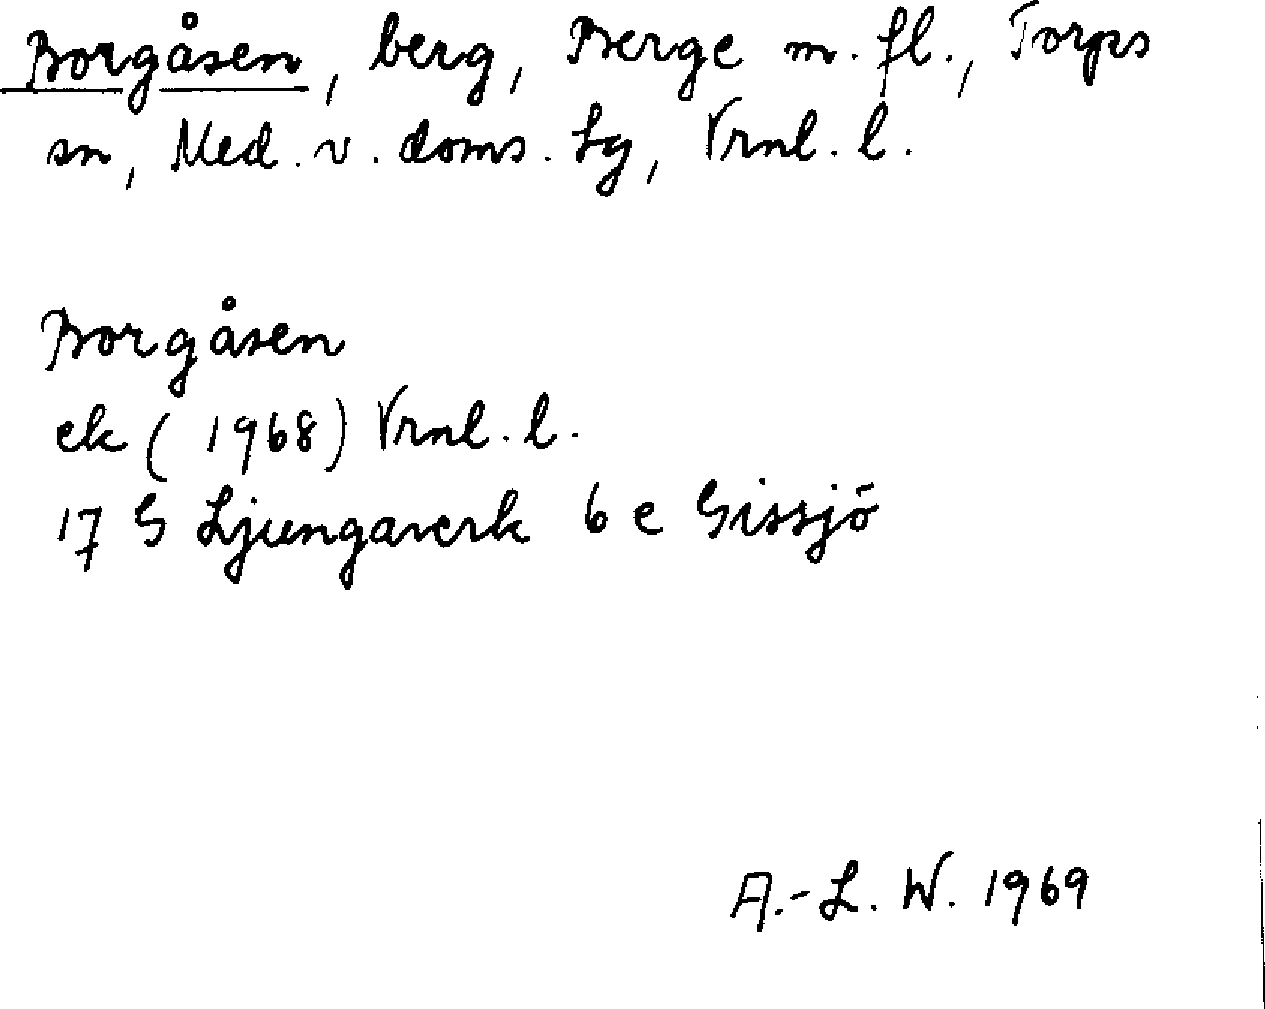 Borgåsen, berg, Berge m. fl., Torps
sn, Med. v. doms. tg, Vrnl. l.
Borgåsen
ek (1968) Vrnl. l.
17 G Ljungaverk 6 e Gissjö
A.-L. W. 1969